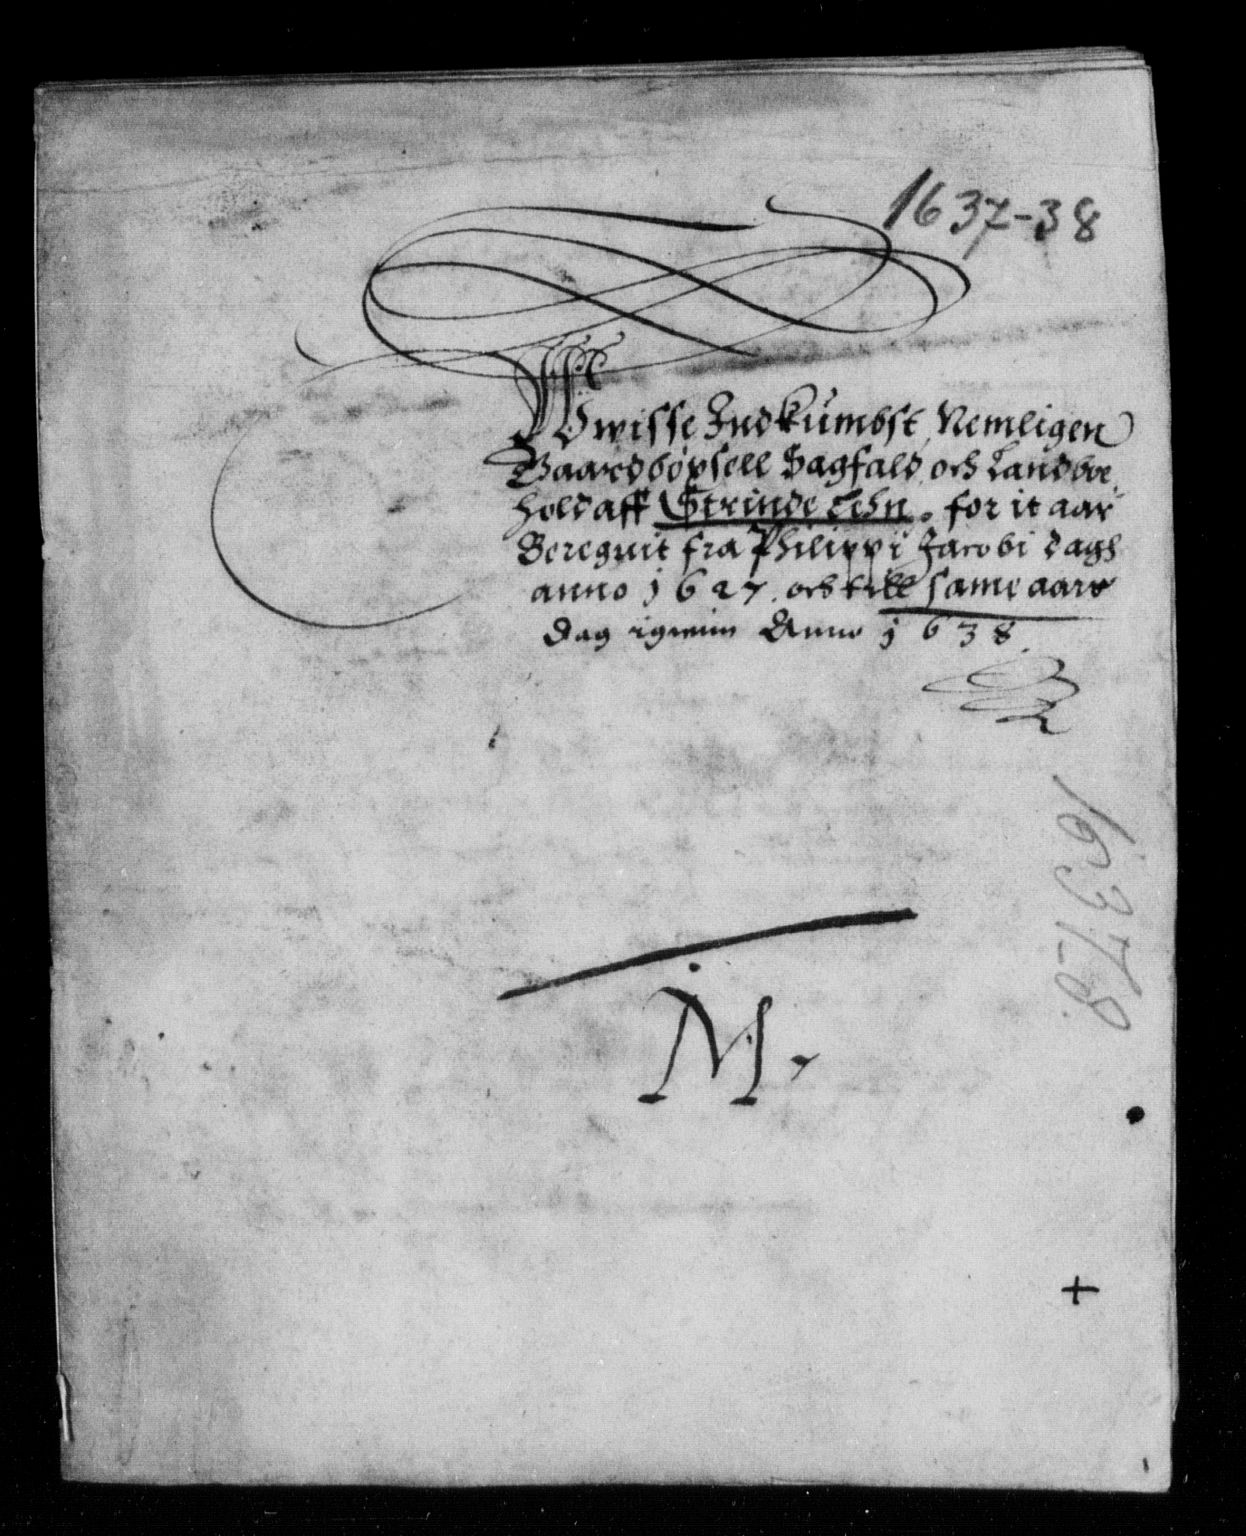 1637-38
Uwisse Indkumbst, Nemligen
Gaardbøxsell Sagfald och Landboe
hold aff Strinde Lehn. for it aar
Beregnit fra Philippi Jacobi dagh
anno 1627. och till same aars
dag igienn Anno 1638
1637-8.
M.